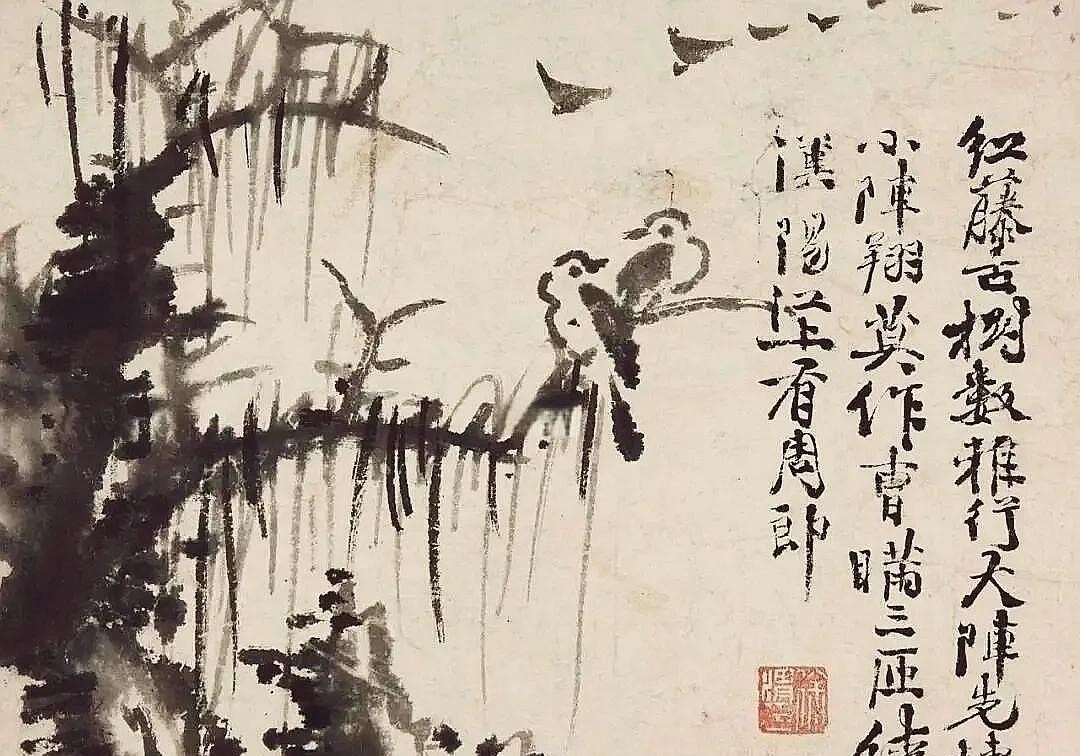 紅藤古樹數雅行大陣先
小陣翔莫作曹瞞三匝
漢陽江上有周郎